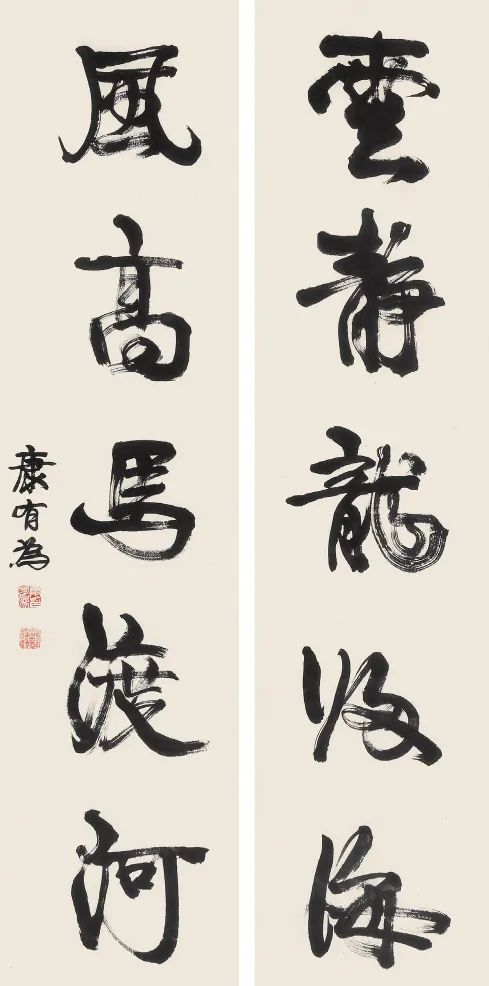 雲靜龍歸海
風高馬渡河
康有為